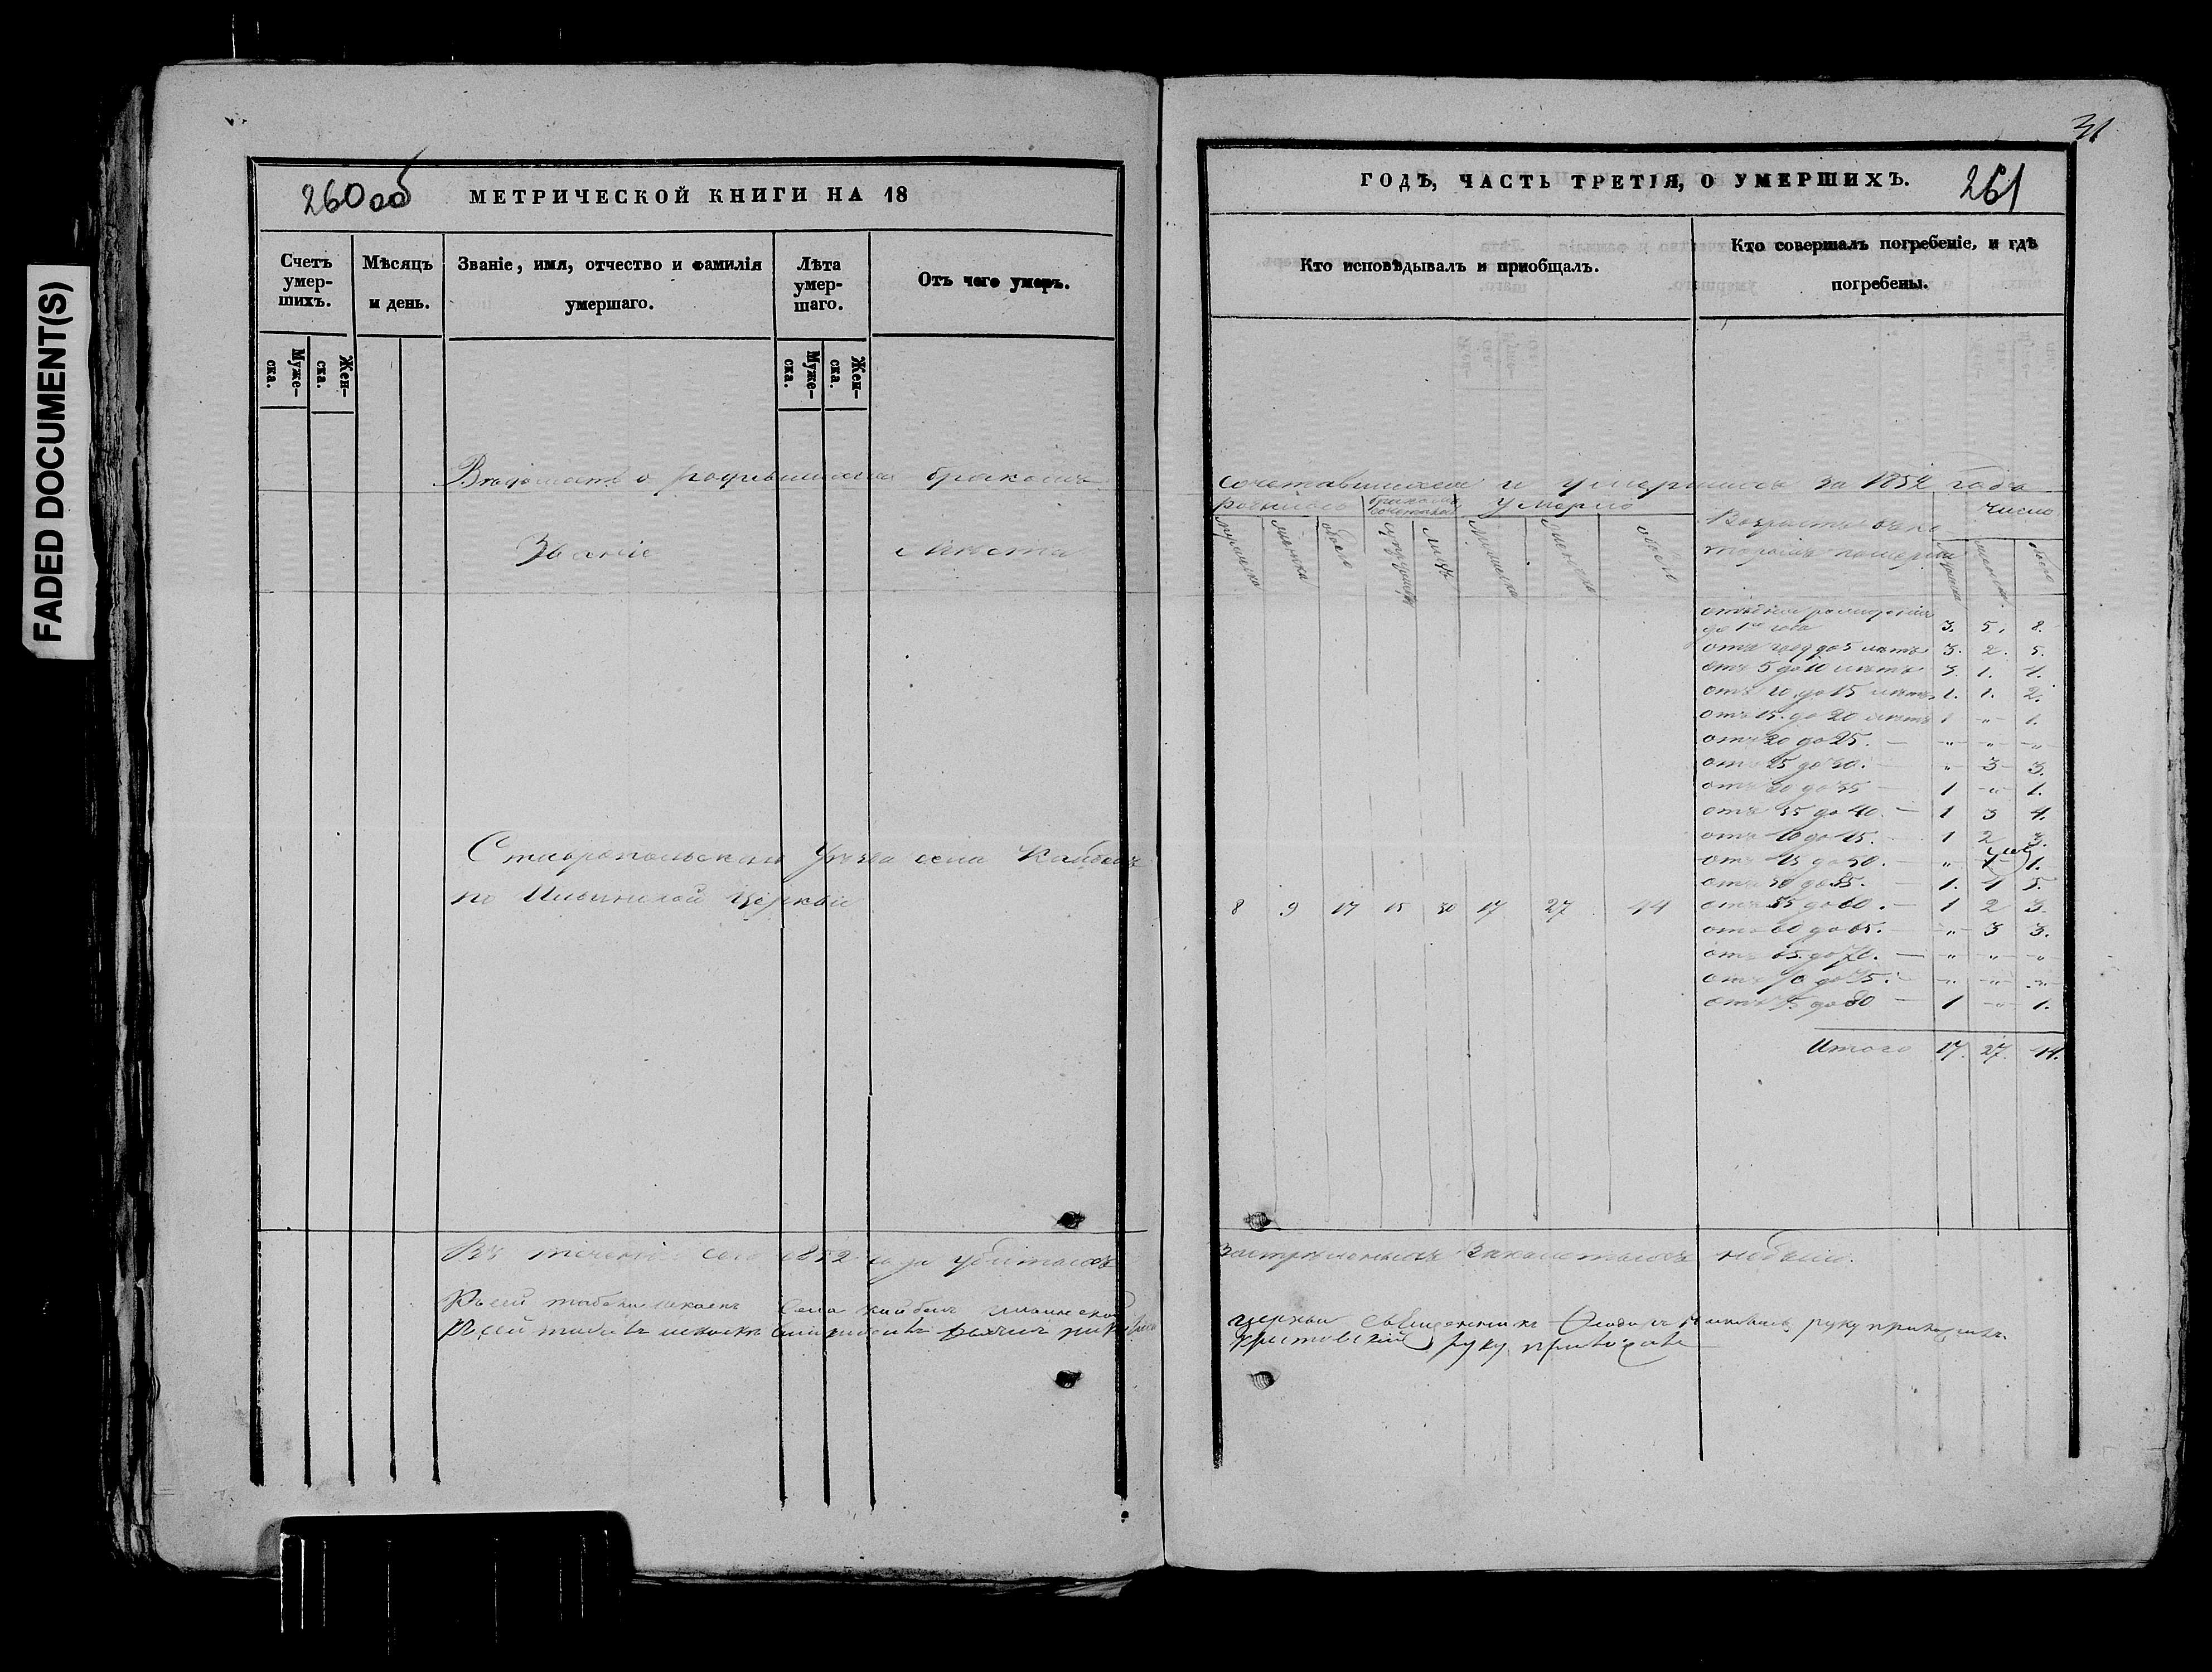 FADED DOCUMENT(S)
260об
МЕТРИЧЕСКОЙ КНИГИ НА 18
Счетъ умер-
шихъ.
Мѣсяцъ
и день.
Званіе, имя, отчество и фамилія
умершаго.
Лѣта
умер-
шаго.
Отъ чего умеръ.
Муже-
ска.
Жен-
ска.
Муже-
ска.
Жен-
ска.
Вѣдомость о родившихся бракомъ
Званіе мѣста
Ставропольскаго Уѣзда села
по Ильинской церкви
Въ теченіи сего 1852 года убитыхъ
Къ сей
31
ГОДЪ, ЧАСТЬ ТРЕТІЯ, О УМЕРШИХЪ.
261
Кто исповѣдывалъ и пріобщалъ.
Кто совершалъ погребеніе, и гдѣ
погребены.
сочетавшихся и умершихъ за 1852 года
родилось бракомъ сочеталось умерло число
мужеска женска обоего супружествъ лицъ мужеска женска обоего
Возрасты
мужеска женска обоего
до 1го года 3. 5. 8.
отъ году до 5 лѣтъ 3. 2. 5.
отъ 5 до 10 лѣтъ 3. 1. 4.
отъ 10 до 15 лѣтъ 1. 1. 2.
отъ 15. до 20 лѣтъ 1 „ 1.
отъ 20 до 25. — „ „ „
отъ 25 до 30. — „ 3 3.
отъ 30 до 35 — 1 „ 1.
отъ 35 до 40. — 1 3 4.
отъ 40 до 45. — 1 2 3.
отъ 45 до 50. — „ 1 1.
отъ 50 до 55. — 1. 4 5.
8 9 17 15 30 17 27 44 отъ 55 до 60. — 1 2 3.
отъ 60 до 65. — „ 3 3.
отъ 65. до 70. — „ „ „
отъ 70 до 75. — „ „ „
отъ 75 до 80 — 1 „ 1.
Итого 17. 27. 44.
небыло.
церкви священникъ руку приложилъ
руку приложилъ